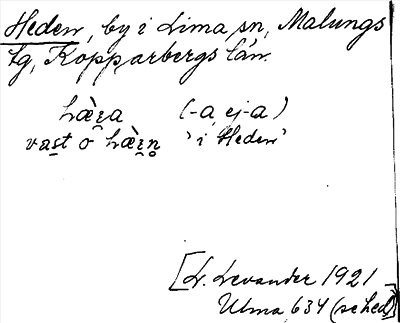 Heden, by i Lima sn, Malungs
tg, Kopparbergs län.
hæ̀ɪ̯a (-a, ej -a)
vas̱t o hæ̀ɪ̯n̥ 'i Heden'
[L. Levander 1921
Ulma 634 (sched)]